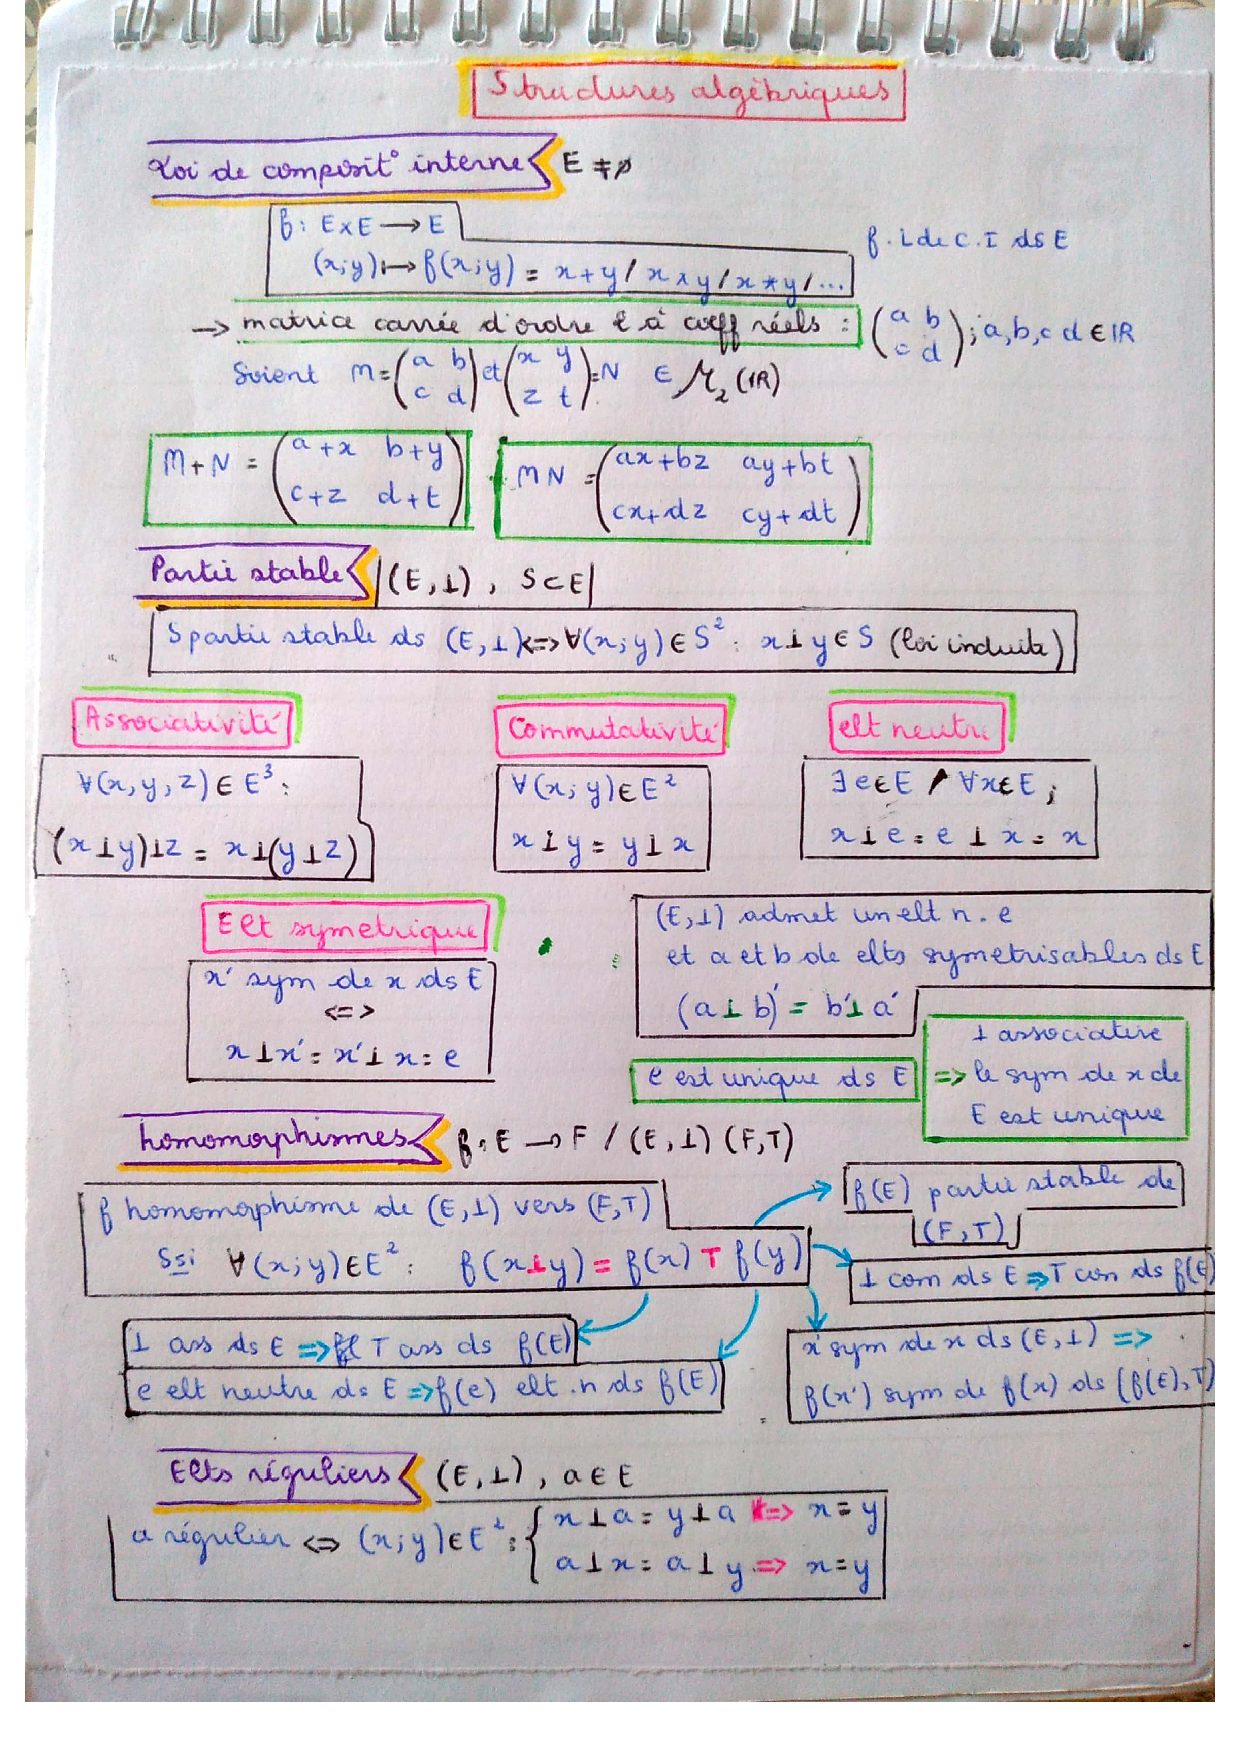 Structures algébriques
Loi de composit° interne E ≠ ∅
f : E×E → E
f. L de C. I ds E
(x;y) ↦ f(x;y) = x+y / x × y / x * y / ...
→ matrice carrée d'ordre 2 à coeff réels : (a b / c d) ; a, b, c d ∈ IR
Soient M = (a b / c d) et (x y / z t) = N ∈ M₂(IR)
M+N = (a+x b+y / c+z d+t) MN = (ax+bz ay+bt / cx+dz cy+dt)
Partie stable (E,⊥) , S⊂E
S partie stable ds (E,⊥) <=> ∀(x;y) ∈ S² : x⊥y ∈ S (loi induite)
Associativité
∀(x,y,z) ∈ E³ :
(x⊥y)⊥z = x⊥(y⊥z)
Commutativité
∀(x;y)∈E²
x⊥y = y⊥x
elt neutre
∃e∈E / ∀x∈E ;
x⊥e = e⊥x = x
Elt symetrique
x' sym de x ds E
<=>
x⊥x' = x'⊥x = e
(E,⊥) admet un elt n. e
et a et b de elts symetrisables ds E
(a⊥b)' = b'⊥a'
e est unique ds E
⊥ associative
=> le sym de x de
E est unique
homomorphismes f : E → F / (E,⊥) (F,T)
f homomorphisme de (E,⊥) vers (F,T)
ssi ∀(x;y)∈E² : f(x⊥y) = f(x) T f(y)
f(E) partie stable de
(F,T)
⊥ com ds E => T com ds f(E)
⊥ ass ds E => T ass ds f(E)
e elt neutre ds E => f(e) elt .n ds f(E)
x' sym de x ds (E,⊥) =>
f(x') sym de f(x) ds (f(E),T)
Elts réguliers (E,⊥) , a∈E
a régulier <=> (x;y)∈E² : { x⊥a = y⊥a => x=y
a⊥x = a⊥y => x=y